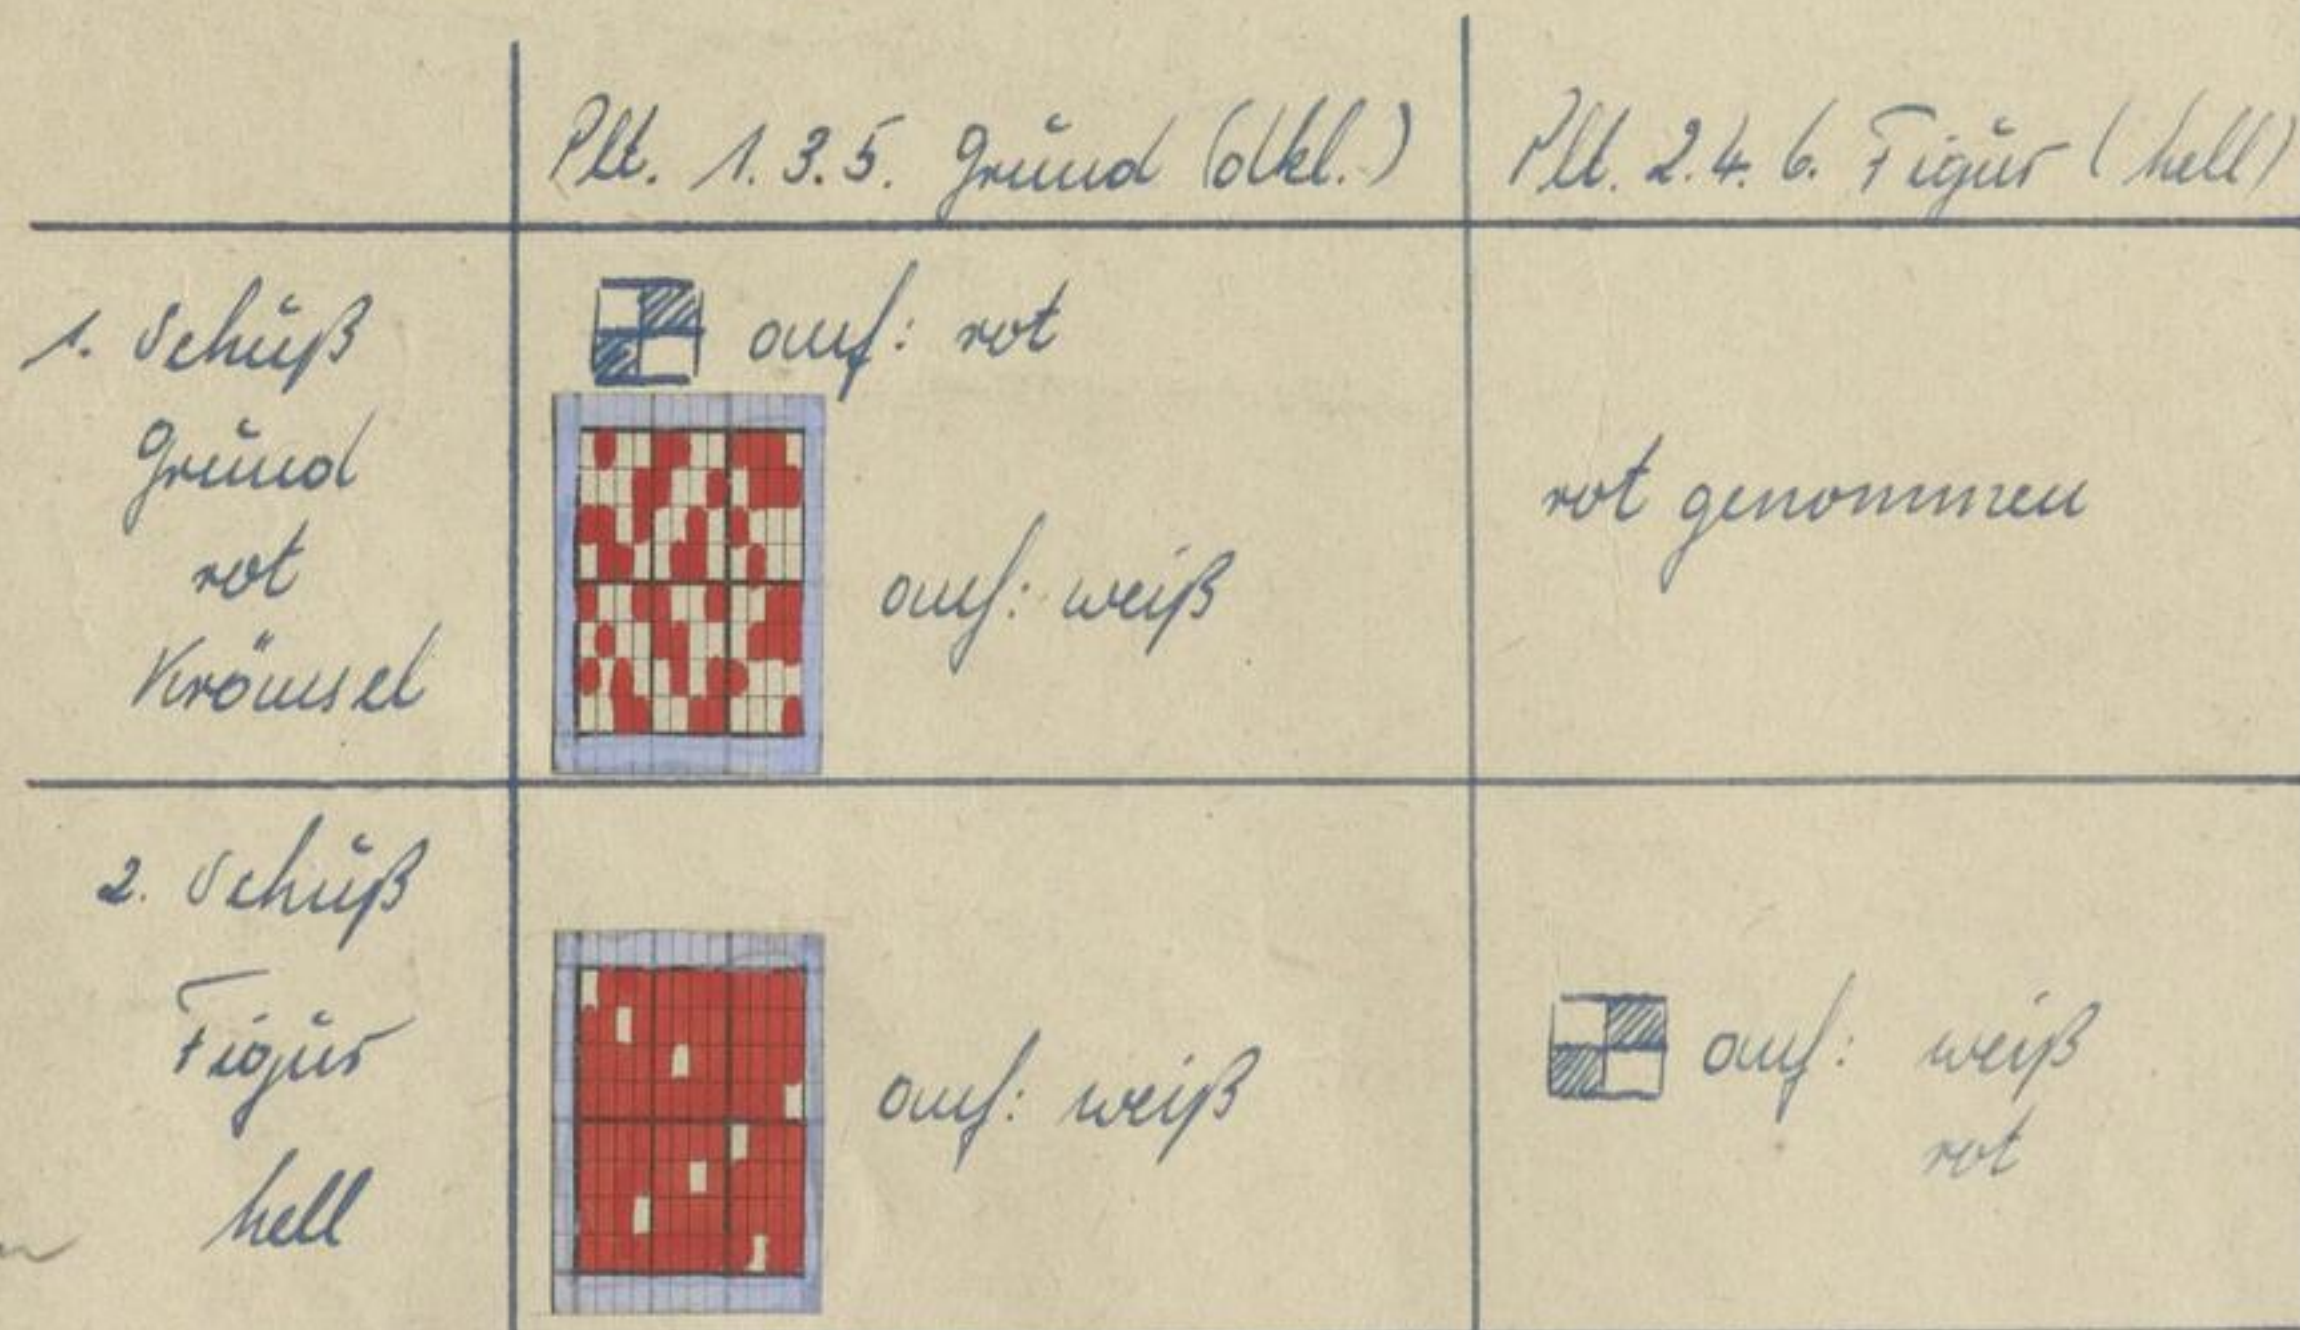 Plt. 1. 3. 5. Grund (dkl.)
Plt. 2. 4. 6. Figur (hell)
1. Schuß
Grund
rot
Krömsel
auf: rot
auf: weiß
rot genommen
2. Schuß
Figur
hell
auf: weiß
auf: weiß
rot